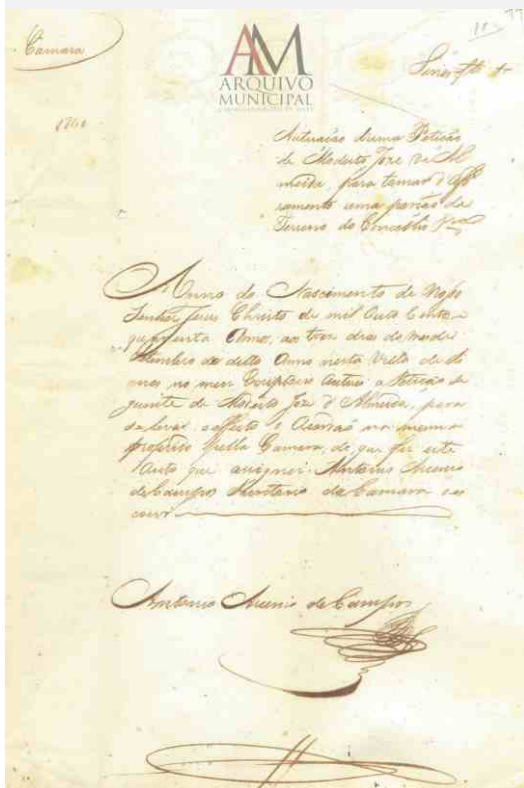 Camara
ARQUIVO
MUNICIPAL
1840
Autuação duma Petição
de Modesto José de Al
meida, para tomar d'Affo
ramento uma porção de
Terreno do Concelho
Anno do Nascimento de Nosso
Senhor Jesus Christo de mil oito Centos
quarenta Annos, aos tres dias do mez de
do ditto Anno nesta Villa de Si
nes, no meu Escriptorio autuei a Petição se
guinte de Modesto José d'Almeida, para
se levar a effeito o Accordão na mesma
proferido pella Camara, de que fiz este
Auto que assignei. Antonio Arsenio
de Campos Secretario da Camara o es
crevi
Antonio Arsenio de Campos